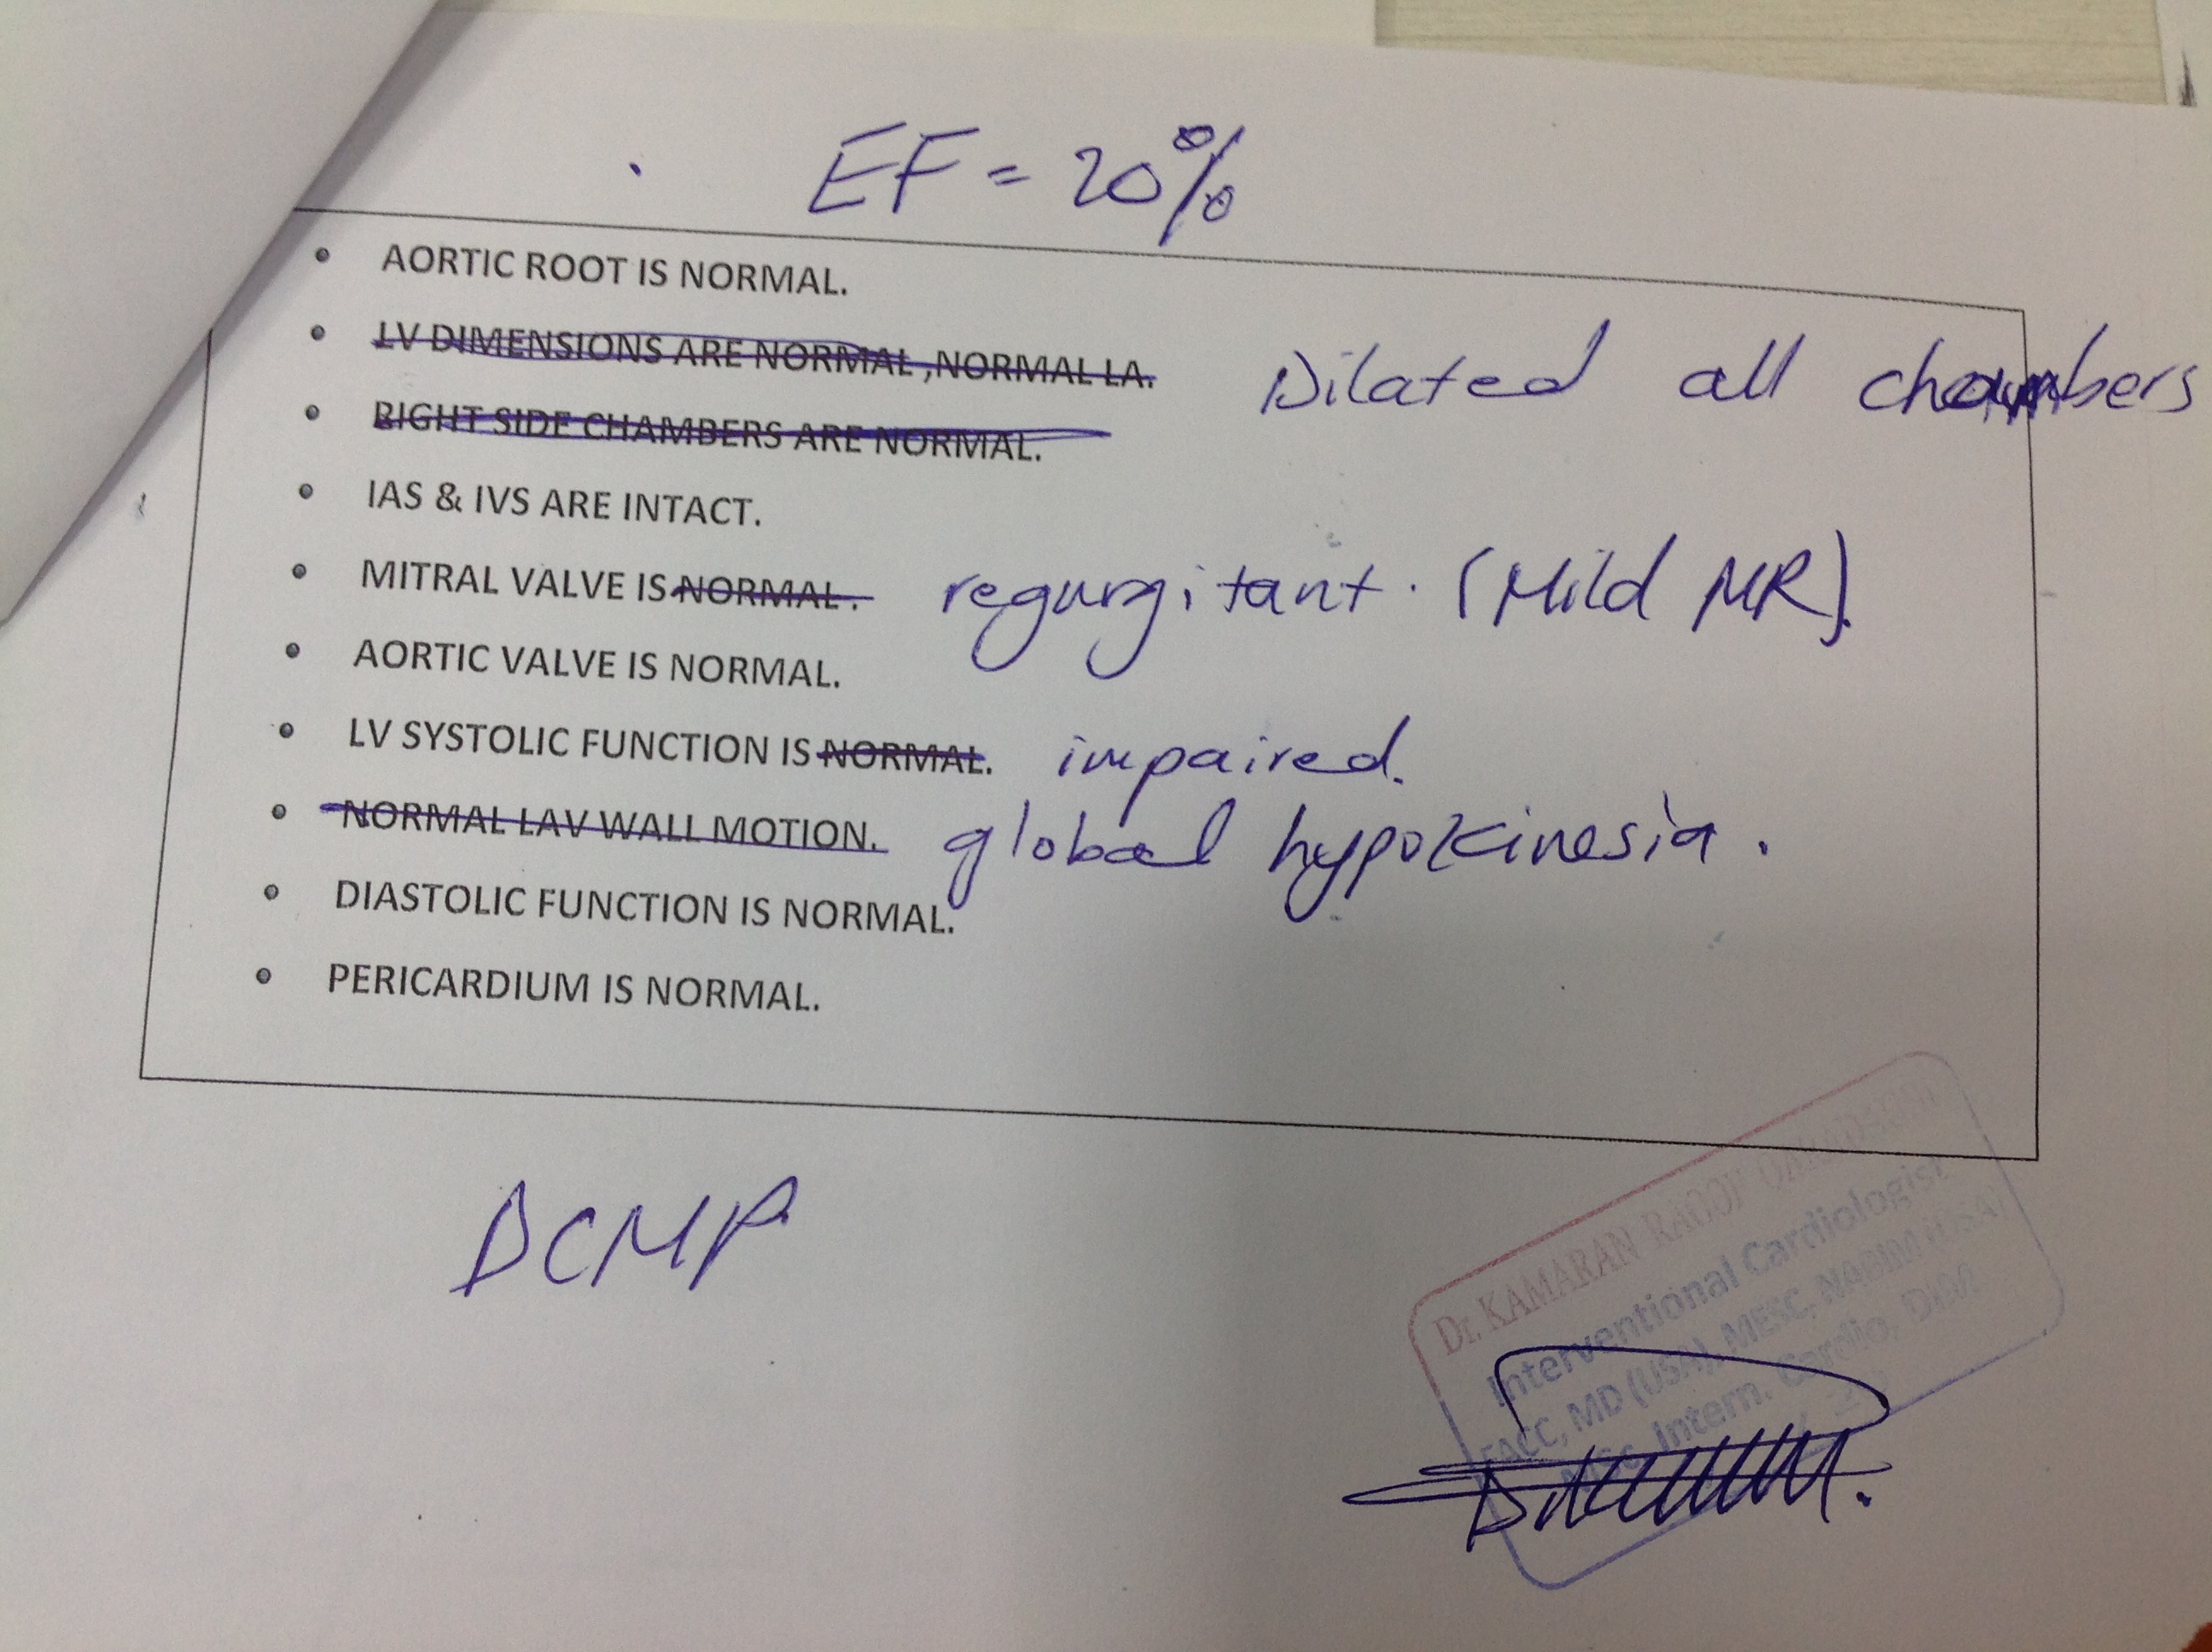 EF = 20%
• AORTIC ROOT IS NORMAL.
• LV DIMENSIONS ARE NORMAL ,NORMAL LA. Dilated all chambers
• RIGHT SIDE CHAMBERS ARE NORMAL.
• IAS & IVS ARE INTACT.
• MITRAL VALVE IS NORMAL. regurgitant. (Mild MR).
• AORTIC VALVE IS NORMAL.
• LV SYSTOLIC FUNCTION IS NORMAL. impaired.
• NORMAL LAV WALL MOTION. global hypokinesia.
• DIASTOLIC FUNCTION IS NORMAL.
• PERICARDIUM IS NORMAL.
DCMP
Dr. KAMARAN
Interventional Cardiologist
FACC, MD (USA), MESC,
MSc, Intern. Cardio, DIM